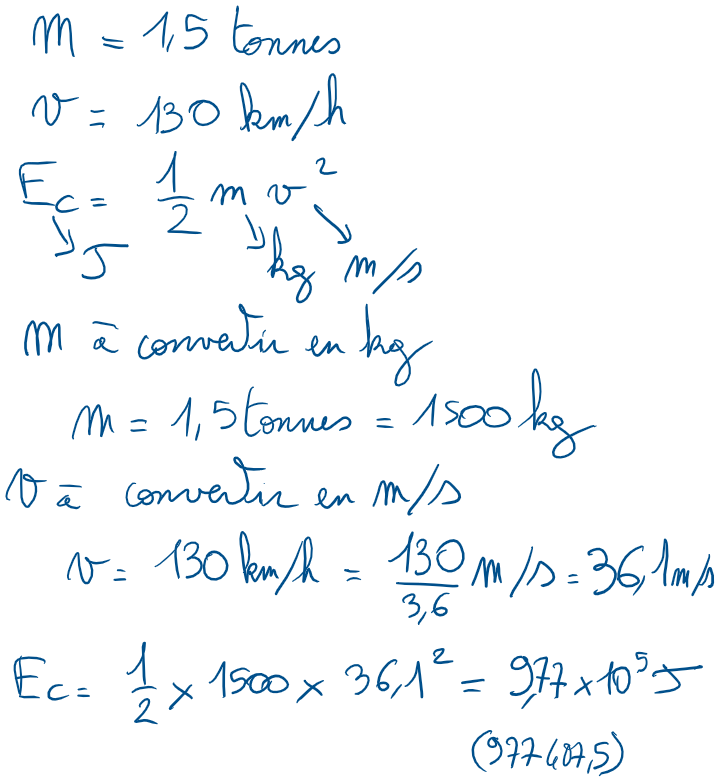 m = 1,5 tonnes
v = 130 km/h
Ec = 1/2 m v²
J kg m/s
m à convertir en kg
m = 1,5 tonnes = 1500 kg
v à convertir en m/s
v = 130 km/h = 130/3,6 m/s = 36,1 m/s
Ec = 1/2 × 1500 × 36,1² = 9,77 × 10⁵ J
(977407,5)